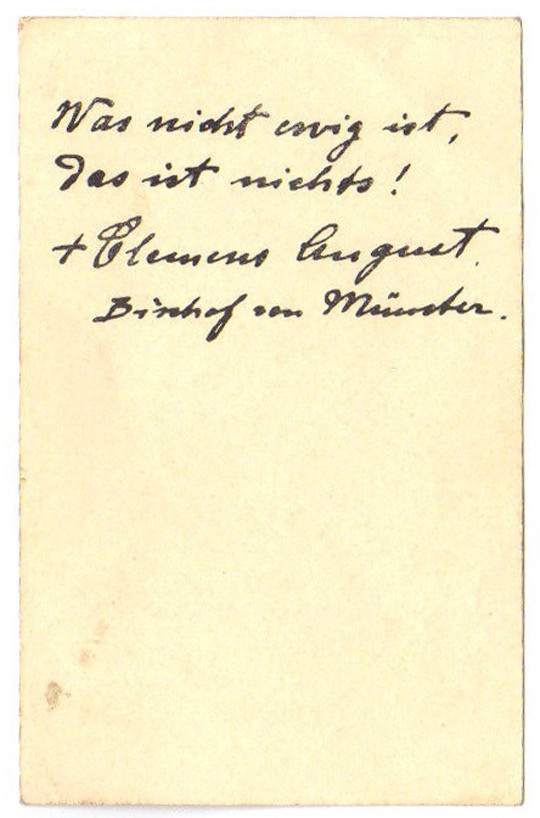 Was nicht ewig ist,
das ist nichts!
+ Clemens August.
Bischof von Münster.